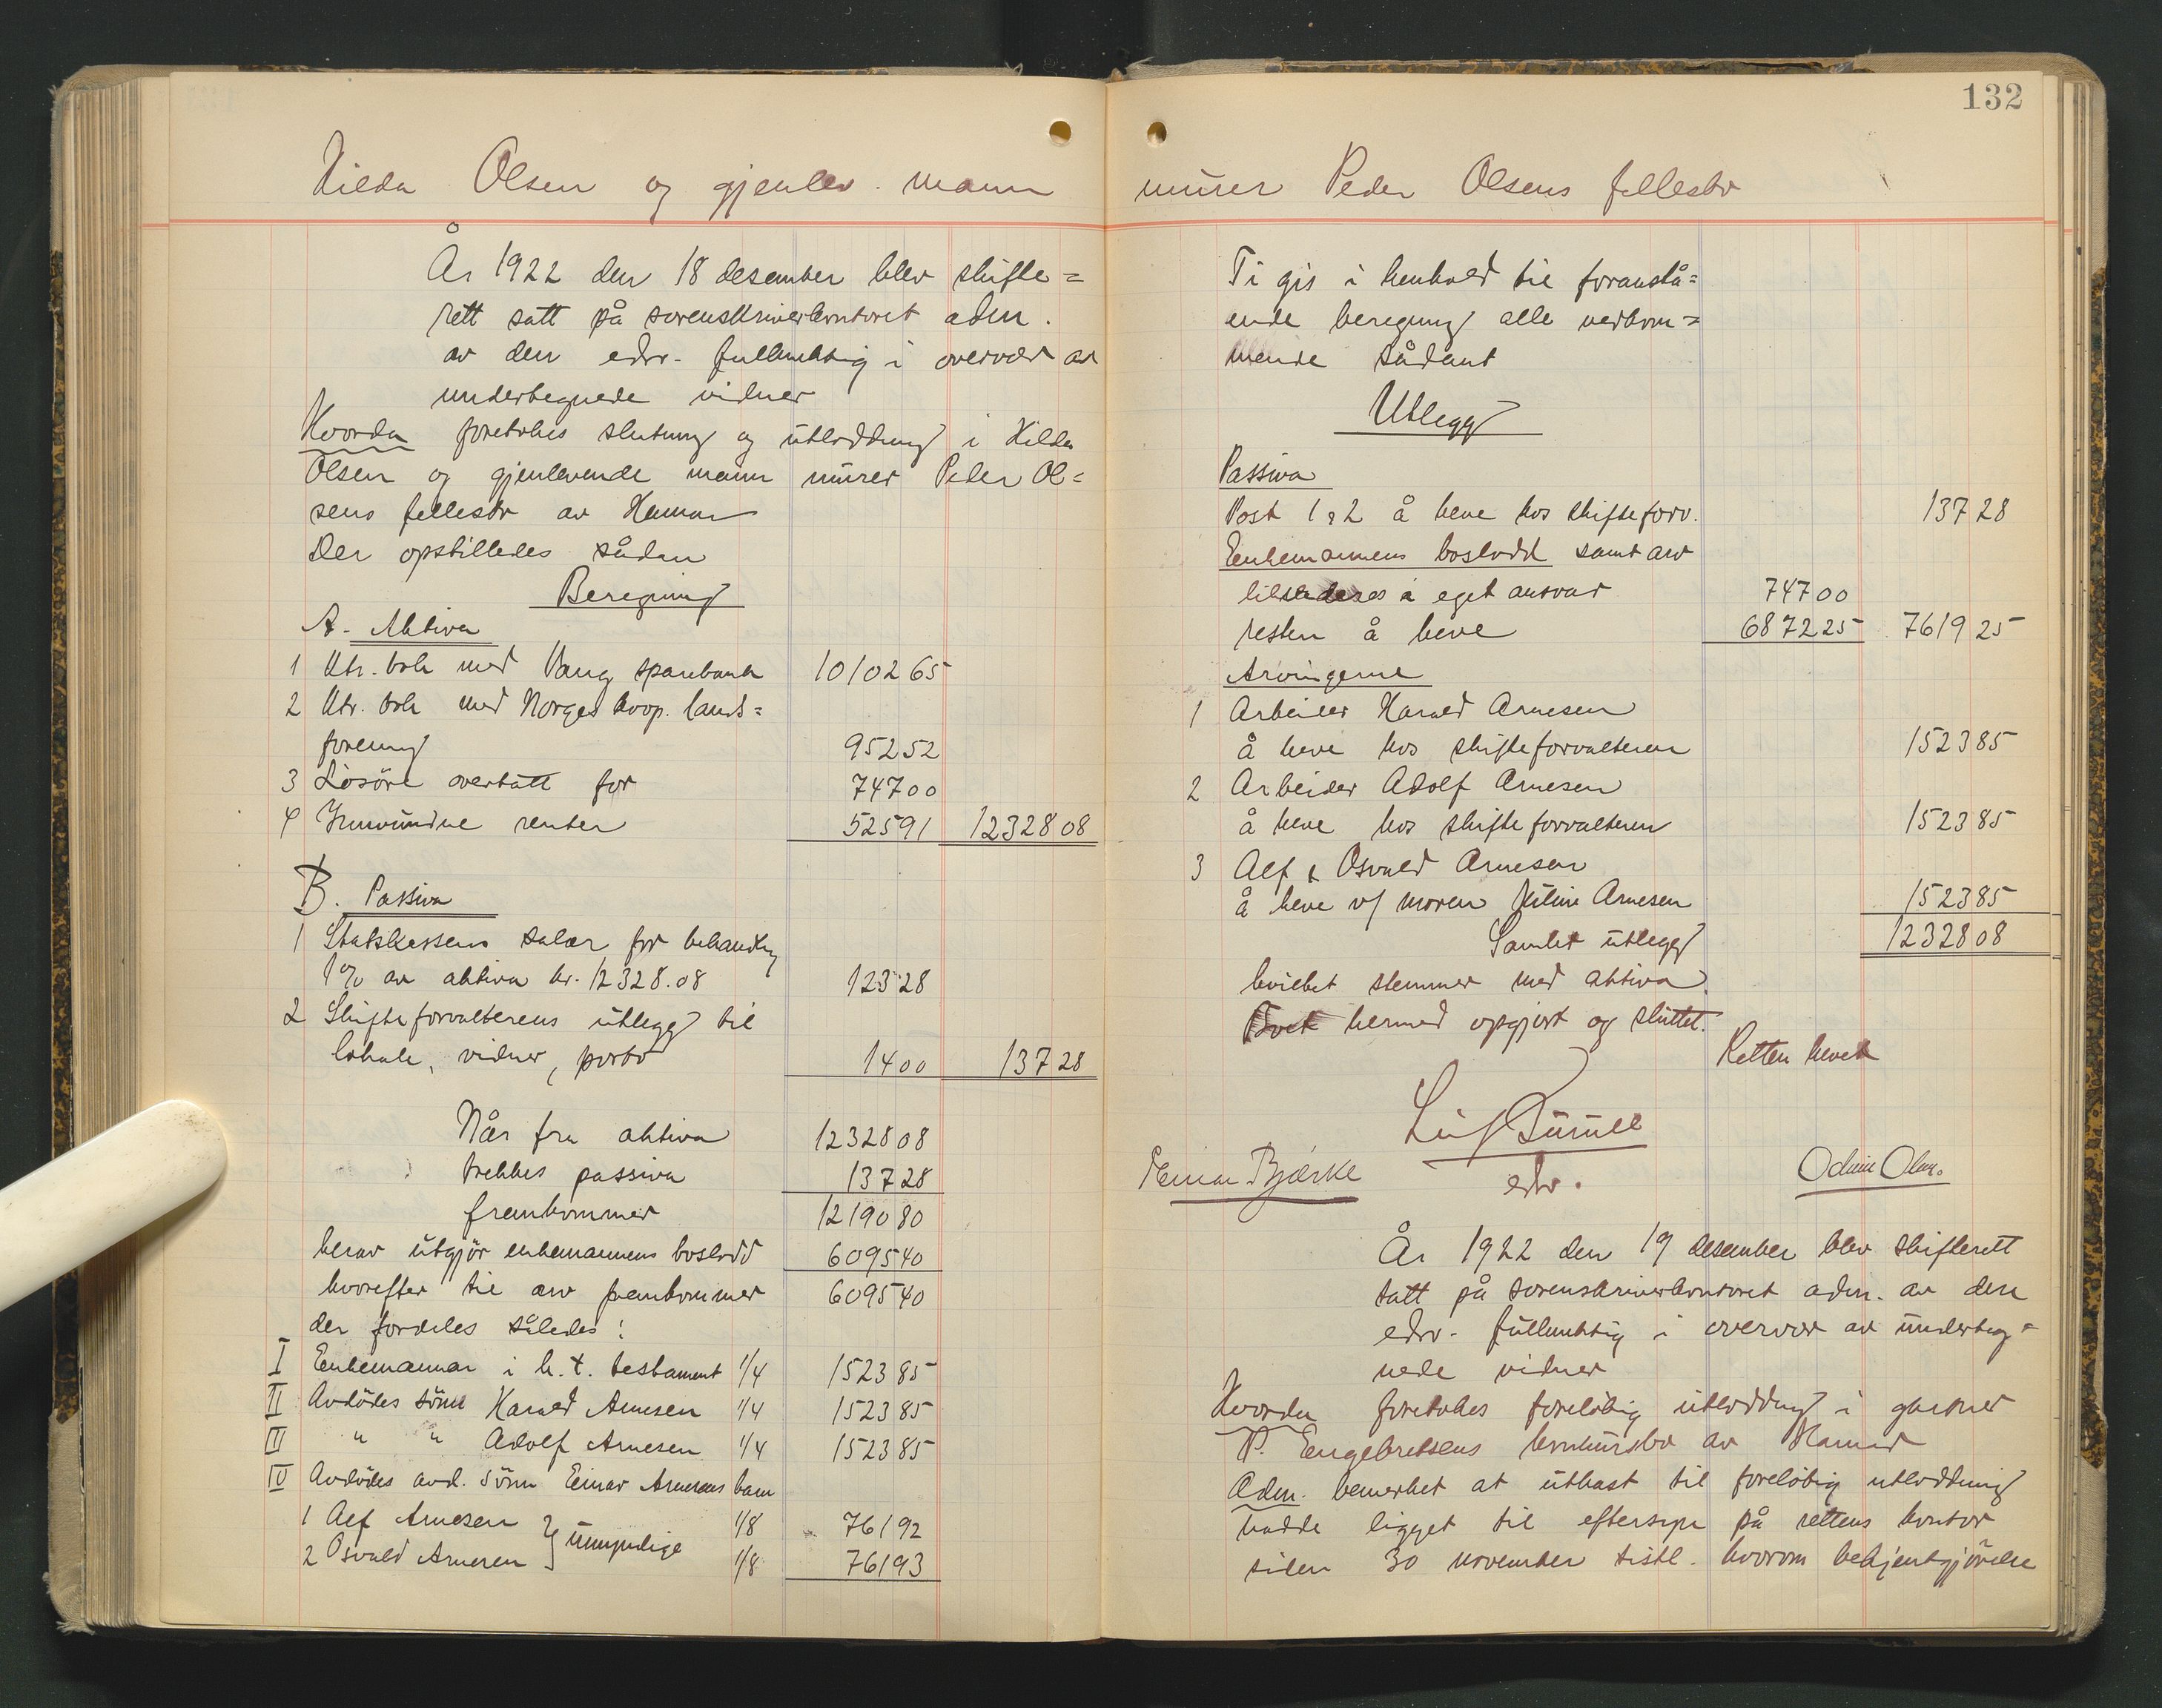 132
Hilda Olsen og gjenlev. mann murer Peder Olsens fellesbo
År 1922 den 18 desember blev skifte=
rett satt på sorenskriverkontoret adm.
av den edsv. fullmektig i overvær av
undertegnede vidner
Hvorda foretokes slutning og utlodding i Hilda
Olsen og gjenlevende mann murer Peder Ol=
sens fellesbo av Hamar
Der opstilledes sådan
Beregning
A. Aktiva
1 Ktr. bok med Vang sparebank 10102 65
2 Ktr. bok med Norges koop. lands=
forening 952 52
3 Løsøre overtatt for 747 00
4 Innvundne renter 525 91 12328 08
B. Passiva
1 Statskassens salær for behandlg
1% av aktiva kr. 12328.08 123 28
2 Skifteforvalterens utlegg til
lokale, vidner, porto 14 00 137 28
Når fra aktiva 12328 08
trekkes passiva 137 28
fremkommer 12190 80
herav utgjør enkemannens boslodd 6095 40
hvorefter til arv fremkommer 6095 40
der fordeles således:
I Enkemannen i h.t. testament 1/4 1523 85
II Avdødes sønn Harald Arnesen 1/4 1523 85
III " " Adolf Arnesen 1/4 1523 85
IV Avdødes avd. sønn Einar Arnesens barn
1 Alf Arnesen } umyndige 1/8 761 92
2 Osvald Arnesen 1/8 761 93
Ti gis i henhold til foranstå=
ende beregning alle vedkom=
mende sådant
Utlegg
Passiva
Post 1 & 2 å heve hos skifteforv. 137 28
Enkemannens boslodd samt arv
eget ansvar 747 00
resten å heve 6872 25 7619 25
Arvingerne
1 Arbeider Harald Arnesen
å heve hos skifteforvalteren 1523 85
2 Arbeider Adolf Arnesen
å heve hos skifteforvalteren 1523 85
3 Alf & Osvald Arnesen
å heve v/ moren Arnesen 1523 85
Samlet utlegg 12328 08
hvilket stemmer med aktiva.
Boet hermed opgjort og sluttet.
Retten hevet
edsv.
Einar Bjørke
År 1922 den 19 desember blev skifterett
satt på sorenskriverkontoret adm. av den
edsv. fullmektig i overvær av underteg=
nede vidner
Hvorda foretokes foreløbig utlodding i gartner
P. Engebretsens konkursbo av Hamar
Adm. bemerket at utkast til foreløbig utlodding
hadde ligget til eftersyn på rettens kontor
siden 30 november sistl. hvorom bekjentgjørelse